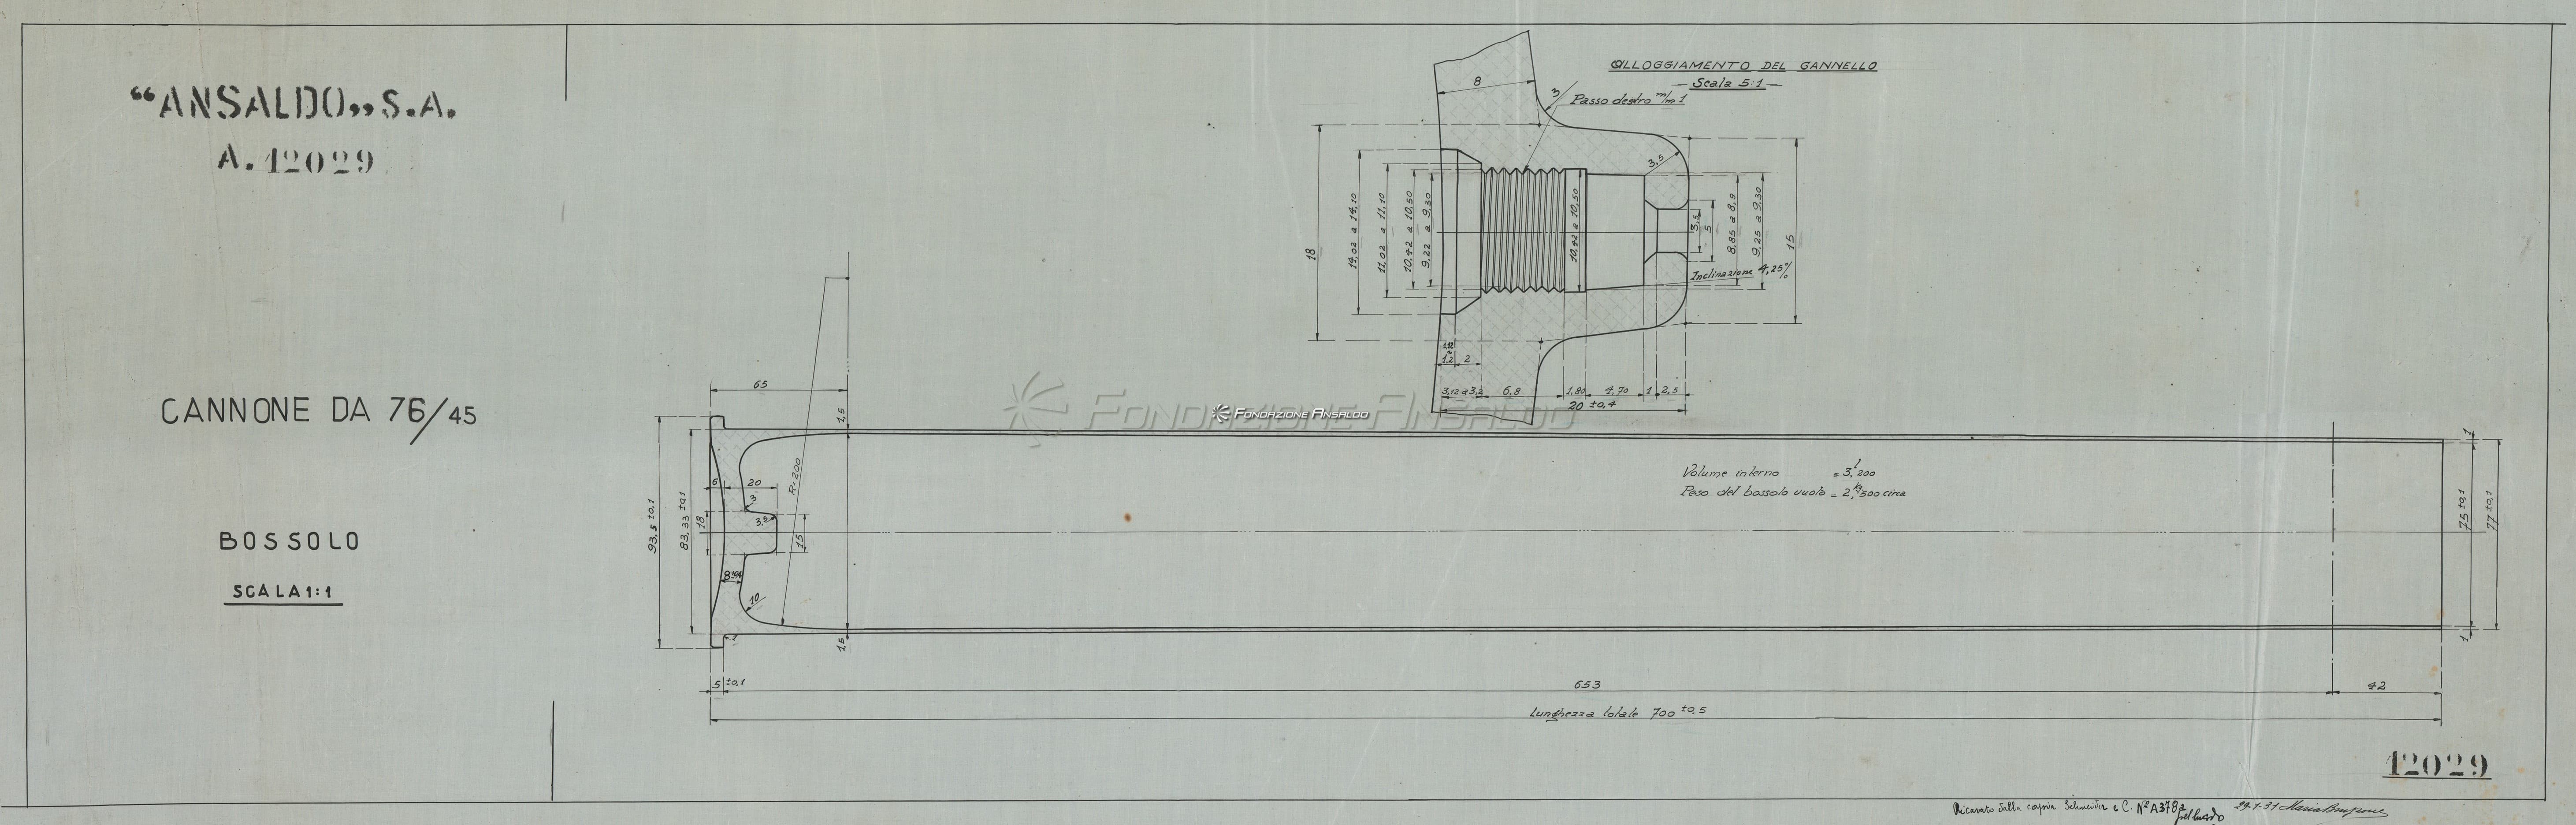 “ANSALDO„ S.A.
A. 12029
CANNONE DA 76/45
BOSSOLO
SCALA 1:1
ALLOGGIAMENTO DEL CANNELLO
Scala 5:1
Passo destro m/m 1
8
3
3,5
18
14,02 a 14,10
11,02 a 11,10
10,42 a 10,50
9,22 a 9,30
10,42 a 10,50
3,5
5
8,85 a 8,9
9,25 a 9,30
15
Inclinazione 4,25%
1,2
2
3,12 a 3,2
6,8
1,80
4,70
1
2,5
20 ±0,4
65
1,5
R=200
6
20
3
3,5
18
15
93,5 ±0,1
83,33 ±0,1
8 ±0,4
10
1,5
FONDAZIONE ANSALDO
FONDAZIONE ANSALDO
Volume interno = 3,l200
Peso del bossolo vuoto = 2,kg500 circa
1
75 ±0,1
77 ±0,1
1
5 ±0,1
653
42
Lunghezza totale 700 ±0,5
12029
Ricavato dalla copia Schneider e C. Nº A378
29.1.31